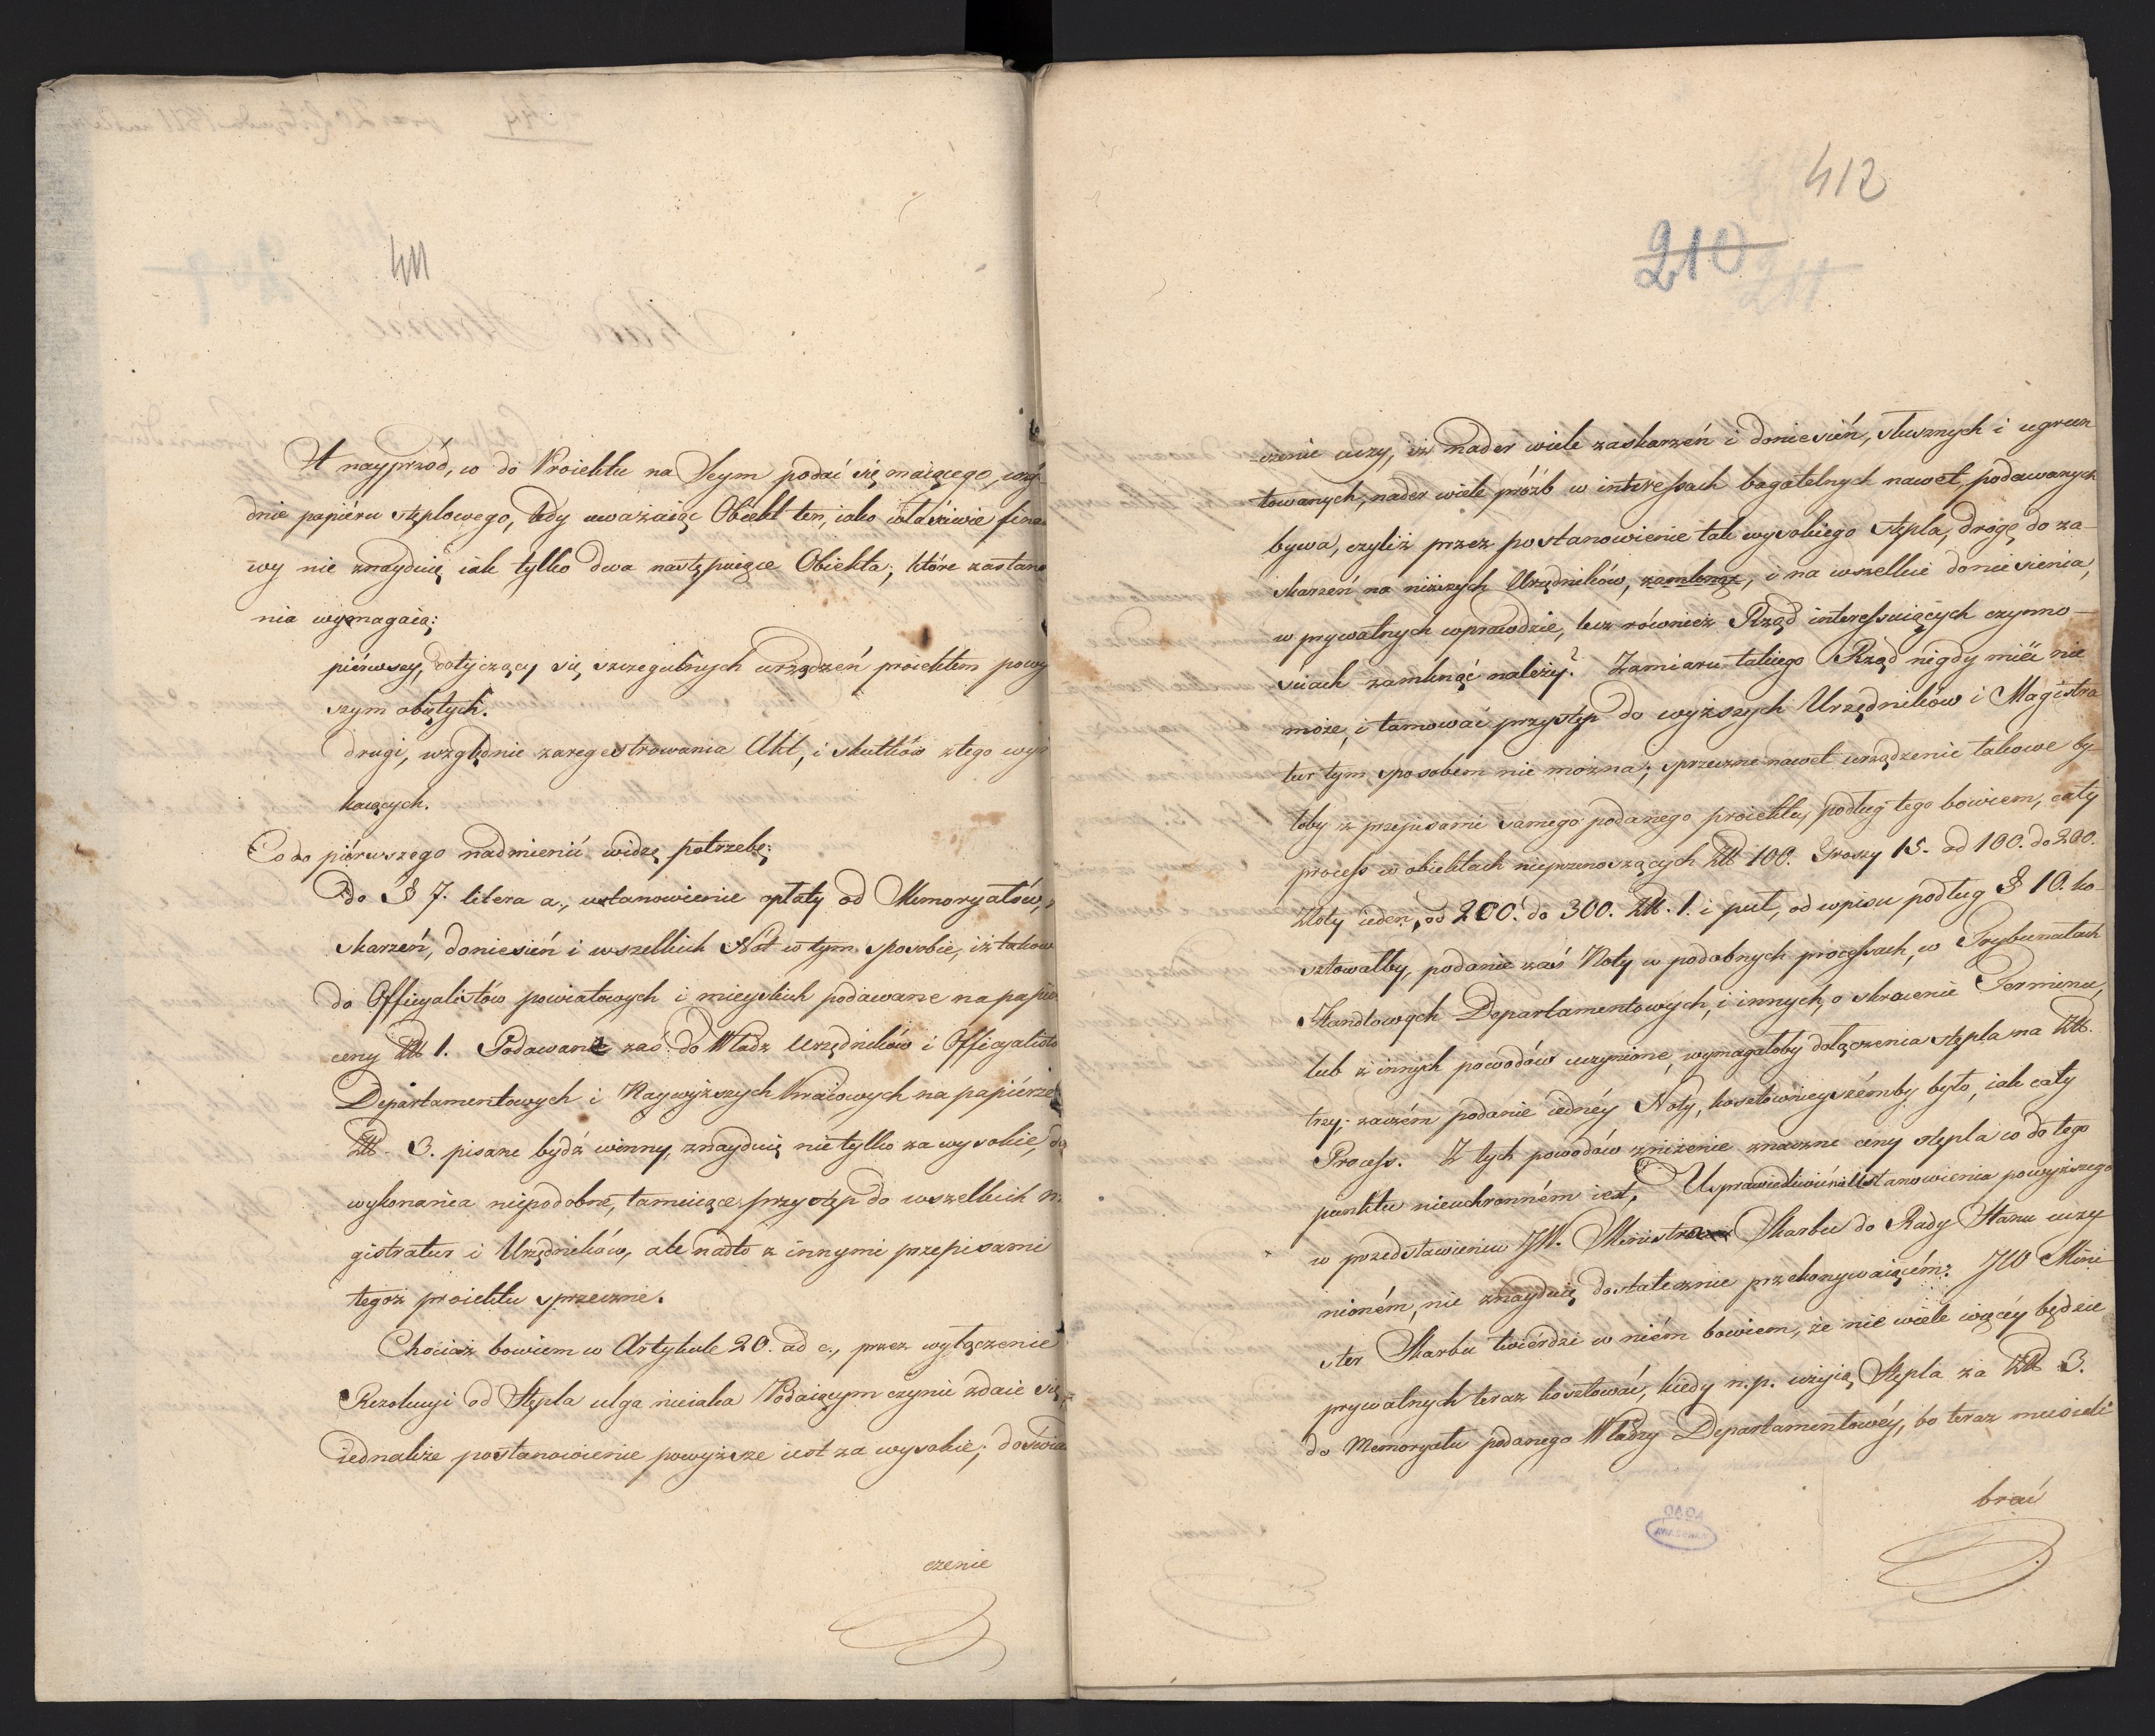 411
A nayprzód, co do Proiektu na Seym podać się maiącego, wzglę
dnie papiéru stęplowego, tedy uważaiąc Obiekt ten, iako właściwie finan
wy nie znayduię iak tylko dwa następuiące Obiekta, które zastano
nia wymagaią;
piérwszy, dotyczący się szczegulnych urządzeń proiektem powy
szym obiętych.
drugi, względnie zaregestrowania Akt, i skutków z tego wyni
kaiących.
Co do piérwszego nadmienić widzę potrzebę;
do § 7. litera a., ustanowienie opłaty od Memoryałów,
skarzeń, doniesień i wszelkich Not w tym sposobie, iż takow
do Officyalistów powiatowych i mieyskich podawane na papier
ceny Złł 1. Podawane zaś do Władz Urzędników i Officyalistó
Departamentowych i Naywyższych Kraiowych na papiérze
Złł. 3. pisane bydź winny, znayduię nie tylko za wysokie, do
wykonania niepodobne, tamuiące przystęp do wszelkich Ma
gistratur i Urzędników, ale nadto z innymi przepisami
tegoż proiektu sprzeczne.
Chociaż bowiem w Artykule 20. ad c., przez wyłączenie
Rezolucyi od Stępla ulga nieiaka Podaiącym czynić zdaie się,
iednakże postanowienie powyższe iest za wysokie; doświad
czenie
412
210
211
czenie uczy, iż nader wiele zaskarzeń i doniesień, słusznych i ugrun
towanych, nader wiele próźb w interessach bagatelnych nawet, podawanych
bywa, czyliż przez postanowienie tak wysokiego stępla, drogę do za-
skarzeń na niższych Urzędników, zamknąć, i na wszelkie doniesienia,
w prywatnych wprawdzie, lecz również Rząd interessuiących czynno-
ściach zamknąć należy? Zamiaru takiego Rząd nigdy mieć nie
może, i tamować przystęp do wyższych Urzędników i Magistra
tur tym sposobem nie można; sprzeczne nawet urządzenie takowe by-
łoby z przepisami samego podanego proiektu, podług tego bowiem, cały
process w obiektach nieprzenoszących Złł 100. Groszy 15. od 100. do 200.
Złoty ieden, od 200. do 300. Złł. 1. i puł, od wpisu podług § 10. ko-
sztowałby, podanie zaś Noty w podobnych processach, w Trybunałach
Handlowych Departamentowych, i innych, o skrócenie Terminu,
lub z innych powodów uczynione, wymagałoby dołączenia stępla na Złł.
trzy. zaczém podanie iednéy Noty, kosztownieyszémby było, iak cały
Process. Z tych powodów zniżenie znaczne ceny stępla co do tego
punktu nieuchronném iest. Usprawiedliwienie Ustanowienia powyższego
w przedstawieniu JW. Ministra Skarbu do Rady Stanu uczy
nioném, nie znayduię dostatecznie przekonywaiącém: JW Mini-
ster Skarbu twierdzi w niém bowiem, że nie wiele więcéy będzie
prywatnych teraz kosztować, kiedy n.p. użyią Stępla za Złł 3.
do Memoryału podanego Władzy Departamentowéy, bo teraz musieli
brać
AGAD
WARSZAWA